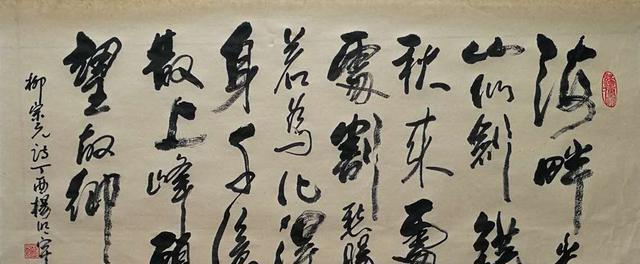 海畔尖
山似劍鋩
秋来處
處割愁腸
若為化得
身千億
散上峰頭
望故鄉
柳宗元詩丁酉楊